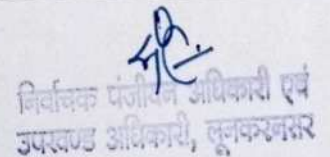 निर्वाचक पंजीयन अधिकारी एवं
उपखण्ड अधिकारी, लूनकरनसर